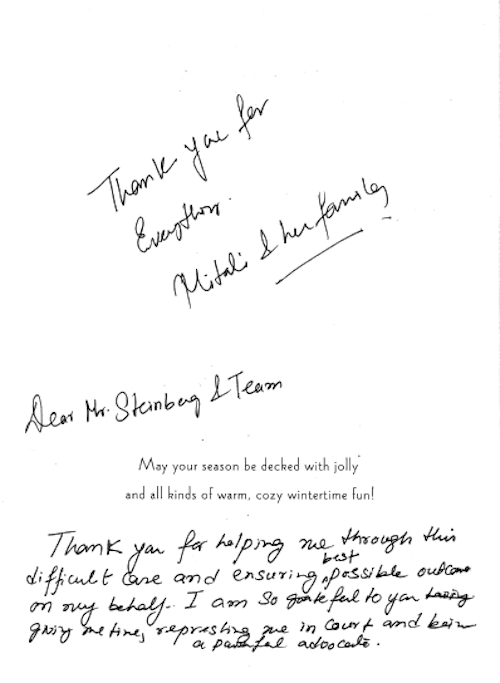 Thank you for
Everything.
Mitali & her family
Dear Mr. Steinberg & Team
May your season be decked with jolly
and all kinds of warm, cozy wintertime fun!
Thank you for helping me through this
difficult case and ensuring best possible outcome
on my behalf. I am so grateful to you
giving me time, represting me in court and being
a powerful advocate.